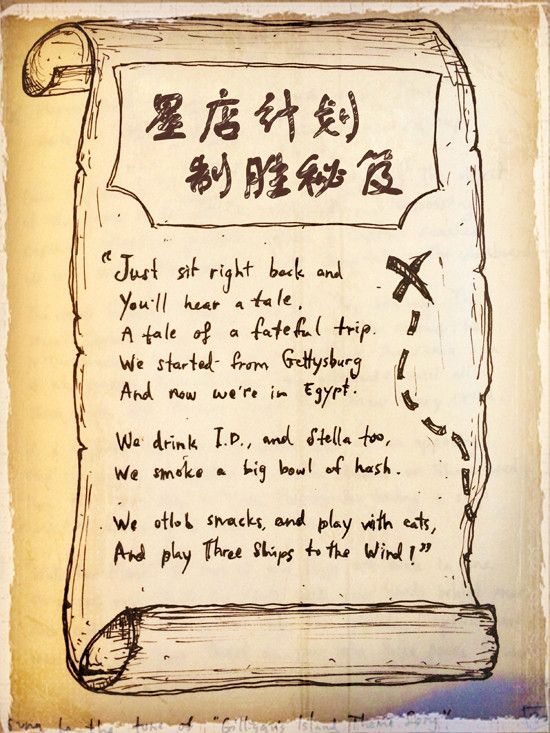 星店计划
制胜秘笈
"Just sit right back and
You'll hear a tale,
A tale of a fateful trip.
We started from Gettysburg
And now we're in Egypt.
We drink I.D., and Stella too,
We smoke a big bowl of hash.
We otlob snacks, and play with cats,
And play Three Ships to the Wind!"
sung to the tune of "Gilligan's Island Theme Song"